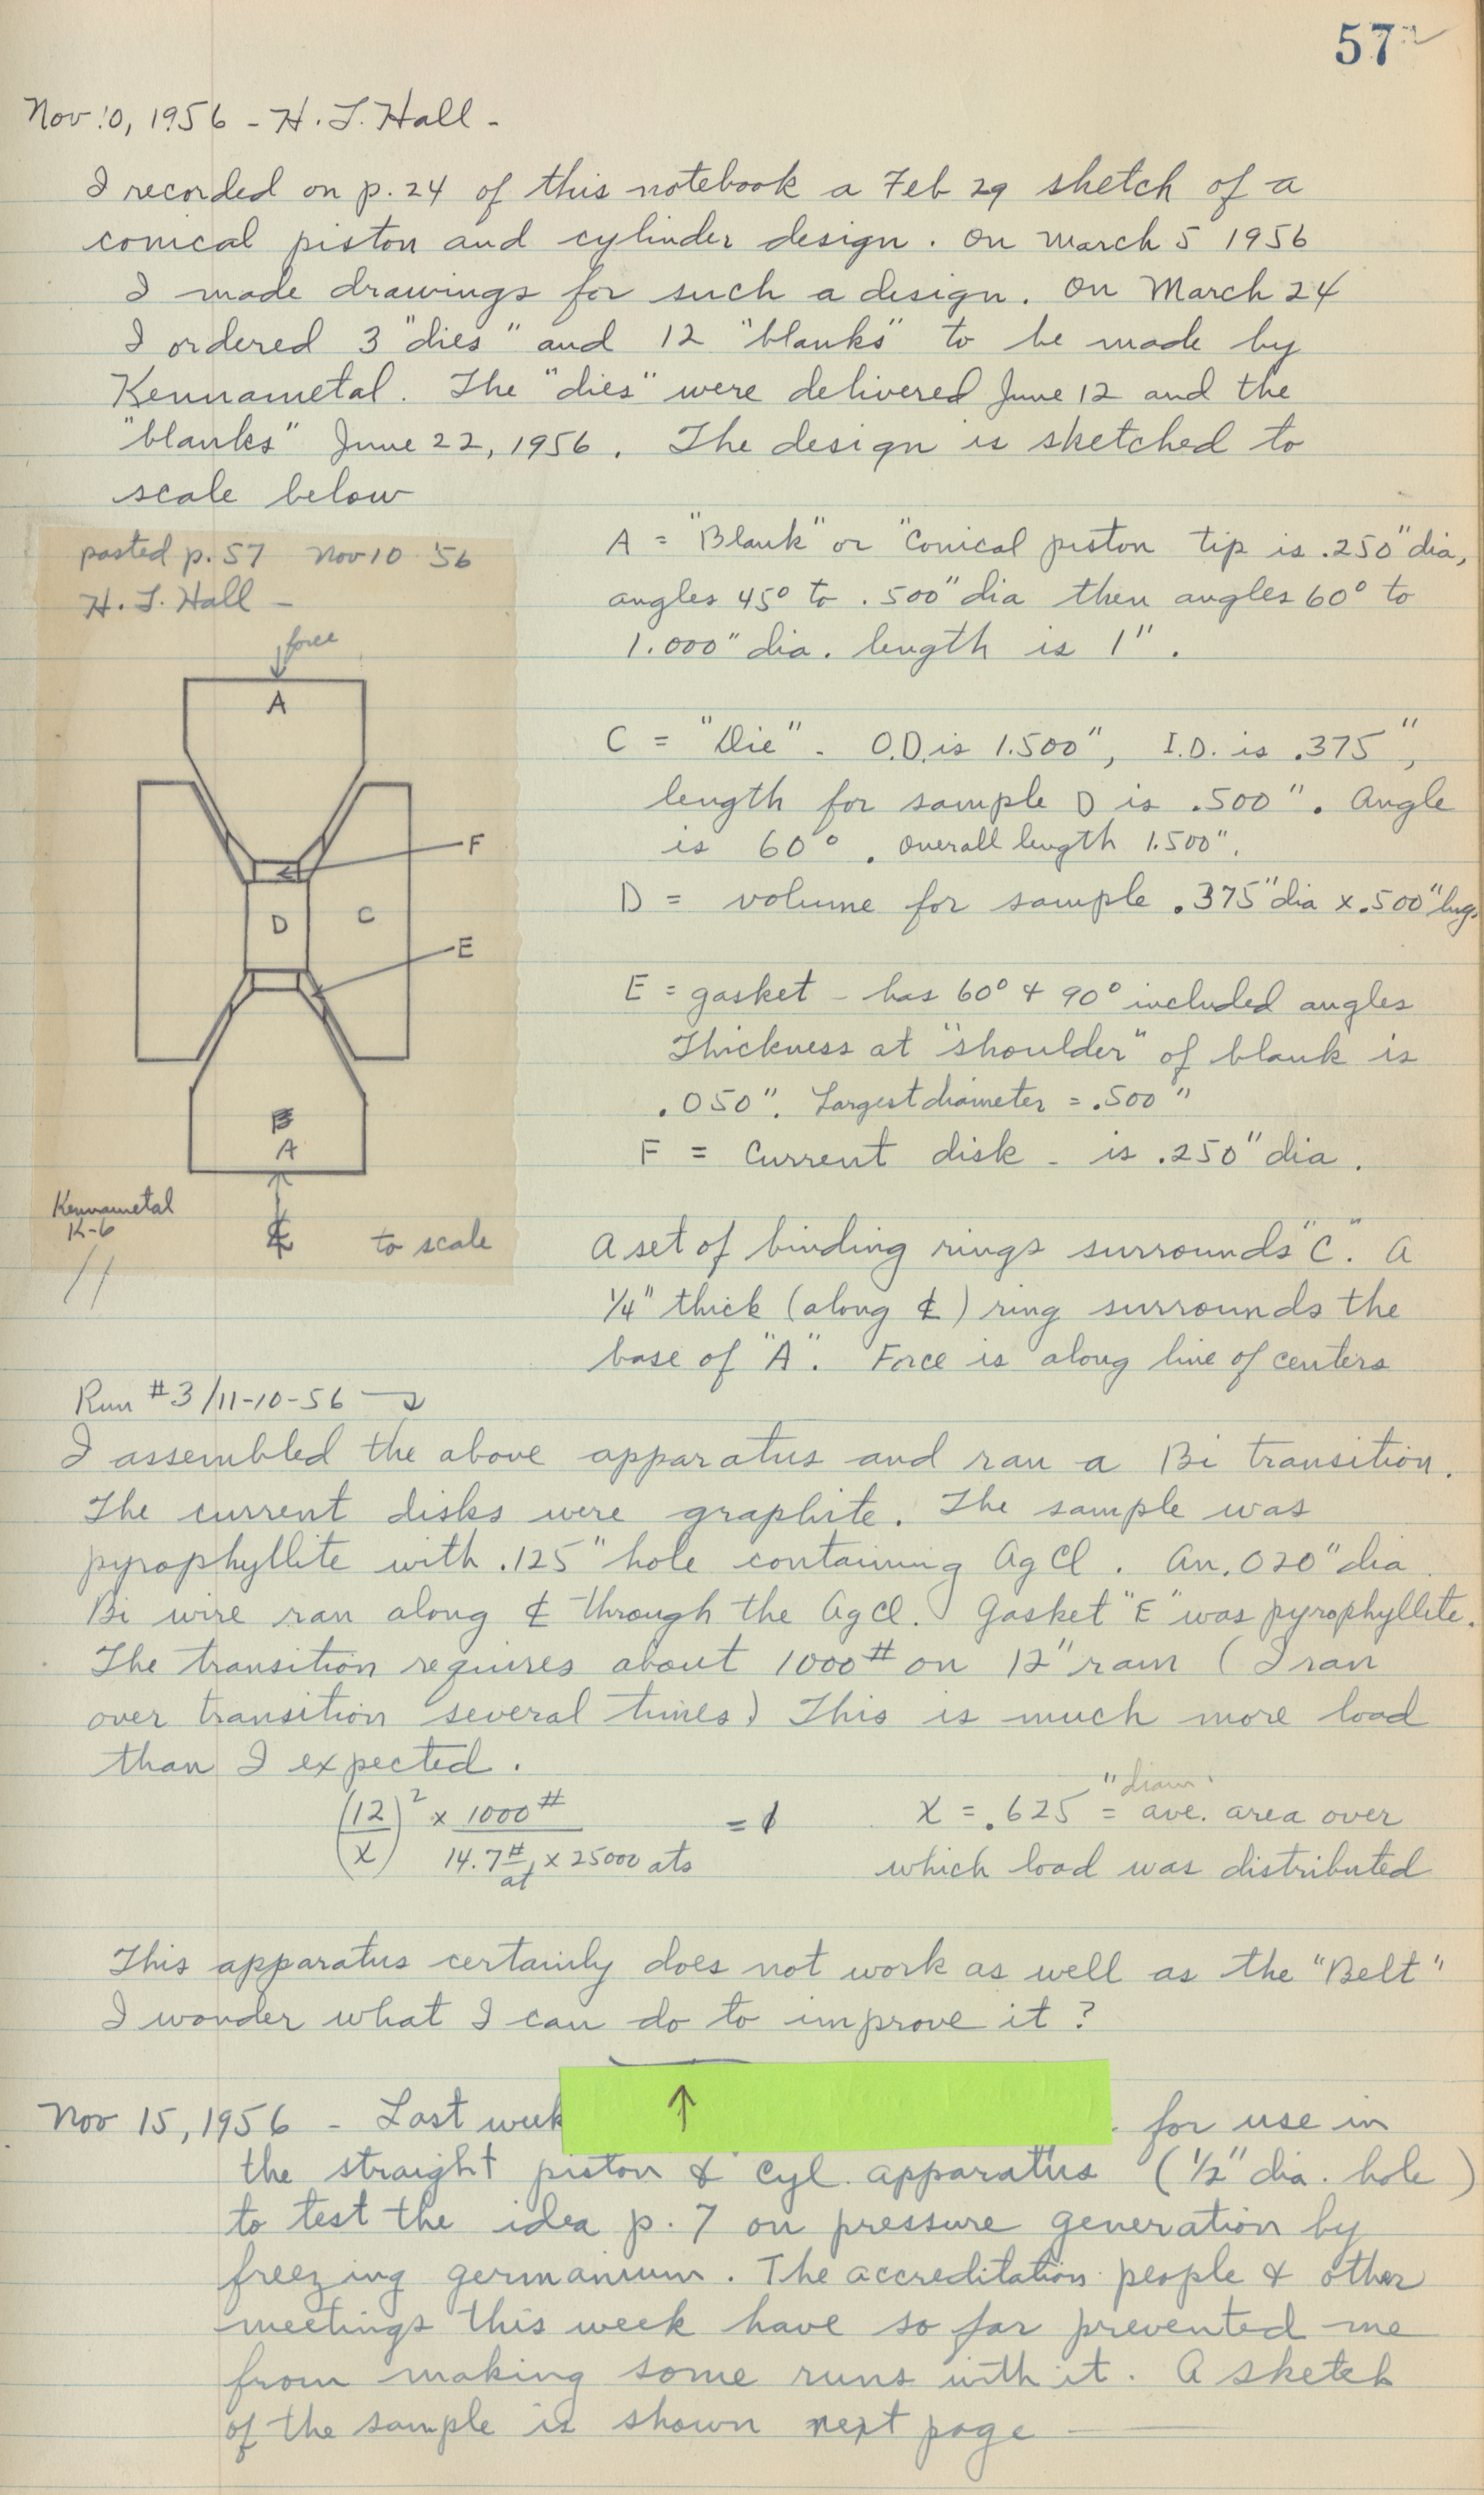 57
Nov 10, 1956 - H. T. Hall -
I recorded on p. 24 of this notebook a Feb 29 sketch of a
conical piston and cylinder design. On March 5 1956
I made drawings for such a design. On March 24
I ordered 3 "dies" and 12 "blanks" to be made by
Kennametal. The "dies" were delivered June 12 and the
"blanks" June 22, 1956. The design is sketched to
scale below
pasted p. 57 Nov 10 '56
H. T. Hall -
force
A
F
D
C
E
B
A
Kennametal
K-6
℄
to scale
A = "Blank" or "Conical piston tip is .250" dia,
angles 45° to .500" dia then angles 60° to
1.000" dia. length is 1".
C = "Die". O.D. is 1.500", I.D. is .375",
length for sample D is .500". Angle
is 60°. overall length 1.500".
D = volume for sample .375" dia x .500" lng.
E = gasket - has 60° & 90° included angles
Thickness at "shoulder" of blank is
.050". Largest diameter = .500"
F = Current disk - is .250" dia.
A set of binding rings surrounds "C". A
1/4" thick (along ℄) ring surrounds the
base of "A". Force is along line of centers
Run #3/11-10-56 →
I assembled the above apparatus and ran a Bi transition.
The current disks were graphite. The sample was
pyrophyllite with .125" hole containing AgCl. An .020" dia
Bi wire ran along ℄ through the AgCl. Gasket "E" was pyrophyllite.
The transition requires about 1000# on 12" ram (I ran
over transition several times) This is much more load
than I expected.
(12/x)² x 1000# / 14.7#/at x 25000 ats = 1
x = .625" = diam. ave. area over
which load was distributed
This apparatus certainly does not work as well as the "Belt"
I wonder what I can do to improve it?
↑
Nov 15, 1956 - Last week for use in
the straight piston & cyl. apparatus (1/2" dia. hole)
to test the idea p. 7 on pressure generation by
freezing germanium. The accreditation people & other
meetings this week have so far prevented me
from making some runs with it. A sketch
of the sample is shown next page